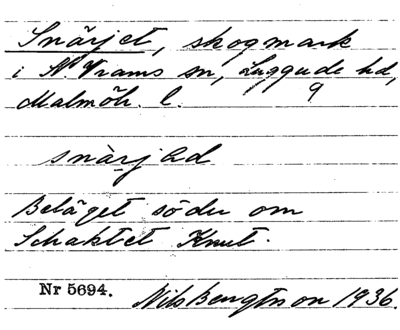 Snärjet, skogmark
i N. Vrams sn, Luggude hd,
Malmöh. l. 9
snàrjəd
Beläget söder om
Schaktet Knut.
Nr 5694. Nils Bengtsson 1936.